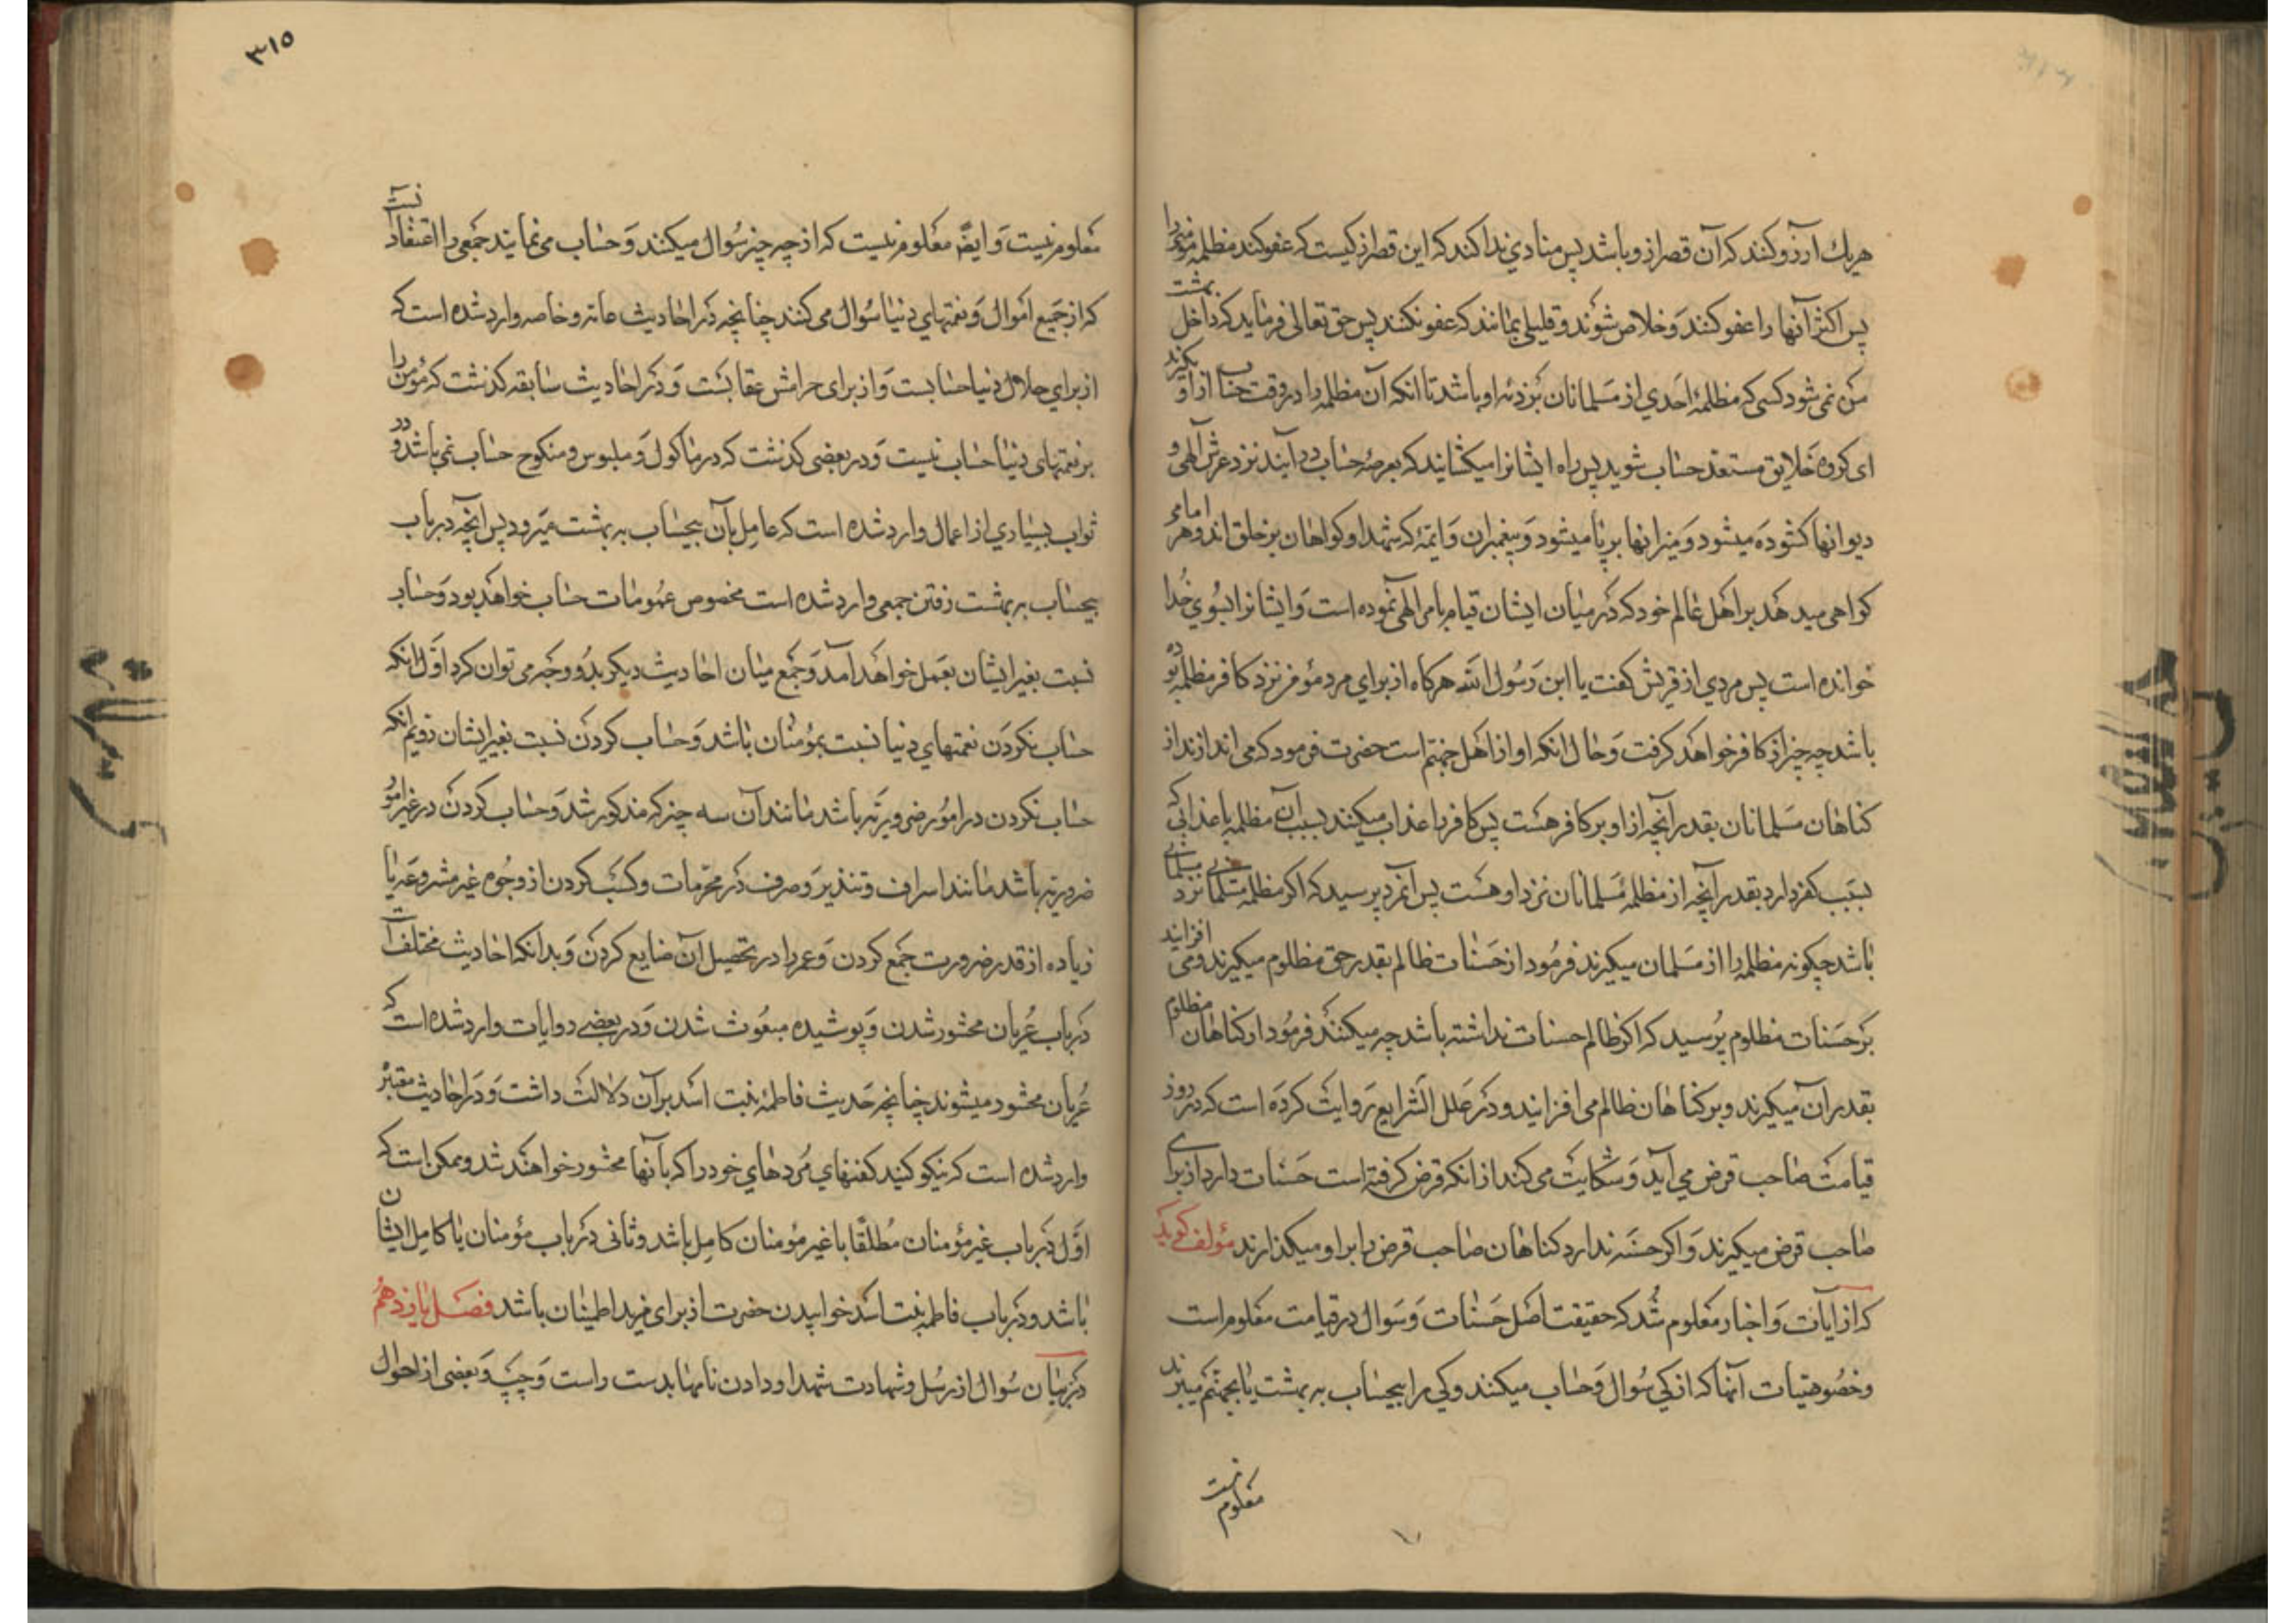 هریك آرزو کنند که آن قصر از و باشد پس منادي ندا کند که این قصر از کیست که عفو کند مظلمه مؤمنی را
پس اکثر آنها را عفو کنند و خلاص شوند و قلیلی بمانند که عفو نکنند پس حق تعالی فرماید که داخل بهشت
من نمی شود کسی که مظلمهٔ احدي از مسلمانان نزد او باشد تا انکه آن مظلمه را در وقت حساب از او بگیرند
ای کروه خلایق مستعد حساب شوید پس راه ایشانرا میکشایند که بعرصهٔ حساب در آیند نزد عرش آلهی و
دیوانها کشوده میشود و میزانها برپا میشود و پیغمبران و ائمه که شهدا و کواهان بر خلق اند و هر امامی
کواهی میدهد بر اهل عالم خود که در میان ایشان قیام بامر الهی نموده است و ایشانرا بسوي خدا
خوانده است پس مردي از قریش کفت یا ابن رسول الله هرکاه از براي مرد مؤمن نزد کافر مظلمه بوده
باشد چه چیز از کافر خواهد کرفت و حال انکه او از اهل جهنم است حضرت فرمود که می اندازند از
کناهان مسلمانان بقدر آنچه از او بر کافر هست پس کافر را عذاب میکنند بسبب آن مظلمه با عذابی که
بسبب کفر دارد بقدر آنچه از مظلمهٔ مسلمانان نزد او هست پس آنمرد پرسید که اکر مظلمه مسلمانی نزد مسلمانی
باشد چکونه مظلمه را از مسلمان میکیرند فرمود از حسنات ظالم بقدر حق مظلوم میکیرند و می افزایند
بر حسنات مظلوم پرسید که اکر ظالم حسنات نداشته باشد چه میکنند فرمود از کناهان مظلوم
بقدر آن میکیرند و بر کناهان ظالم می افزایند و در علل الشرایع روایت کرده است که در روز
قیامت صاحب قرض می آید و شکایت می کند از انکه قرض کرفته است حسنات دارد از براي
صاحب قرض میکیرند و اکر حسنه ندارد کناهان صاحب قرض را بر او میکذارند مؤلف کوید
که از آیات و اخبار معلوم شد که حقیقت اصل حسنات و سوال در قیامت معلوم است
و خصوصیات آنها که از کي سؤال و حساب میکنند و کي را بیحساب به بهشت یا بجهنم میبرند
معلوم نیست
۳۱۵
معلوم نیست و ایضا معلوم نیست که از چه چیز سؤال میکنند و حساب می نمایند جمعی را اعتقاد آنست
که از جمیع اموال و نعمتهاي دنیا سؤال می کنند چنانچه در احادیث عامه و خاصه وارد شده است که
از براي حلال دنیا حسابست و از برای حرامش عقابست و در احادیث سابقه کذشت که مؤمن را
بر نعمتهای دنیا حساب نیست و در بعضی کذشت که در ماکول و ملبوس و منکوح حساب نمی باشد و در
ثواب بسیاري از اعمال وارد شده است که عامل بآن بیحساب به بهشت میرود پس آنچه در باب
بیحساب به بهشت رفتن جمعی وارد شده است مخصوص عمومات حساب خواهد بود و حساب
نسبت بغیر ایشان بعمل خواهد آمد و جمع میان احادیث دیکر بدو وجه می توان کرد اول انکه
حساب نکردن نعمتهاي دنیا نسبت بمؤمنان باشد و حساب کردن نسبت بغیر ایشان دویم انکه
حساب نکردن در امور ضروریه باشد مانند آن سه چیز که مذکور شد و حساب کردن در غیر امور
ضروریه باشد مانند اسراف و تبذیر و صرف در محرمات و کسب کردن از وجوه غیر مشروعه یا
زیاده از قدر ضرورت جمع کردن و عمر را در تحصیل آن ضایع کردن و بدانکه احادیث مختلف است
در باب عریان محشور شدن و پوشیده مبعوث شدن و در بعضے روایات وارد شده است که
عریان محشور میشوند چنانچه حدیث فاطمهٔ بنت اسد بر آن دلالت داشت و در احادیث معتبر
وارد شده است که نیکو کنید کفنهاي مردهاي خود را که بآنها محشور خواهند شد و ممکن است که
اول در باب غیر مؤمنان مطلقا با غیر مؤمنان کامل باشد و ثانی در باب مؤمنان یا کامل ایشان
باشد و در باب فاطمه بنت اسد خوابیدن حضرت از برای مزید اطمینان باشد فصل پانزدهم
در بیان سؤال از رسل و شهادت شهدا و دادن نامها بدست راست و چپ و بعضی از احوال